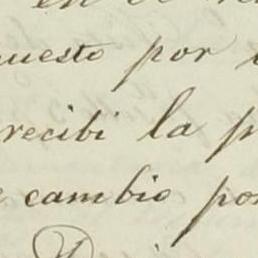 en
uesto por
recibi la p
e cambio por